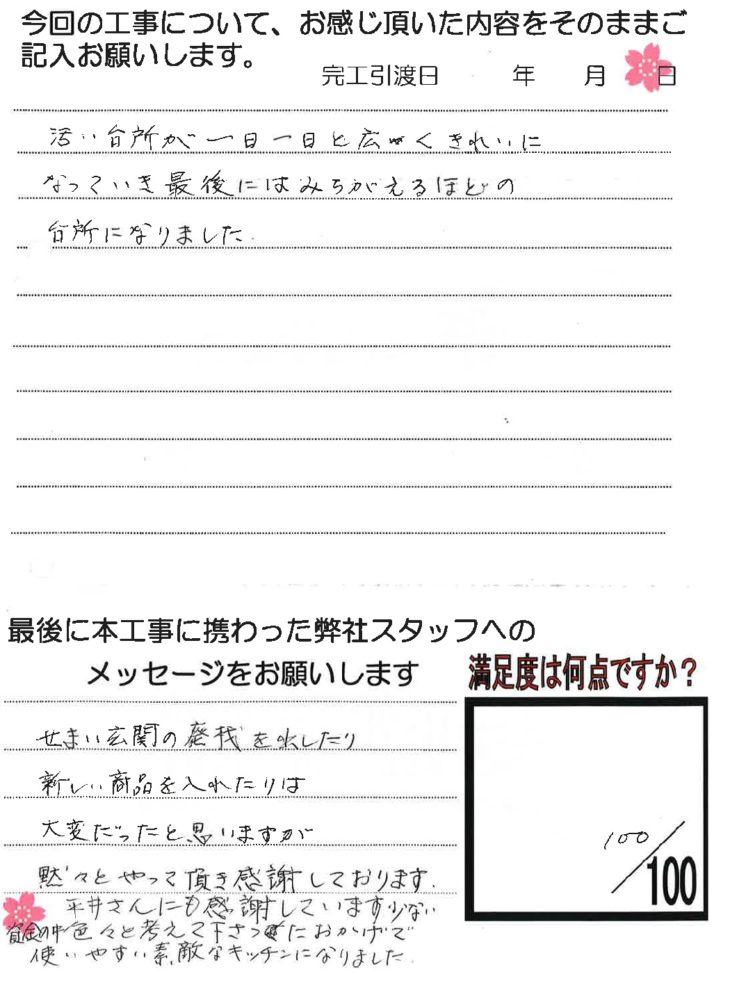 今回の工事について、お感じ頂いた内容をそのままご
記入お願いします。
完工引渡日 年 月 日
台所が一日一日と広くきれいに
なっていき最後にはみちがえるほどの
台所になりました.
最後に本工事に携わった弊社スタッフへの
メッセージをお願いします
満足度は何点ですか？
せまい玄関の を出したり
新しい商品を入れたりは
大変だったと思いますが
黙々とやって頂き感謝しております.
平井さんにも感謝しています少ない
資金の中色々と考えて下さったおかげで
使いやすい素敵なキッチンになりました.
100/100